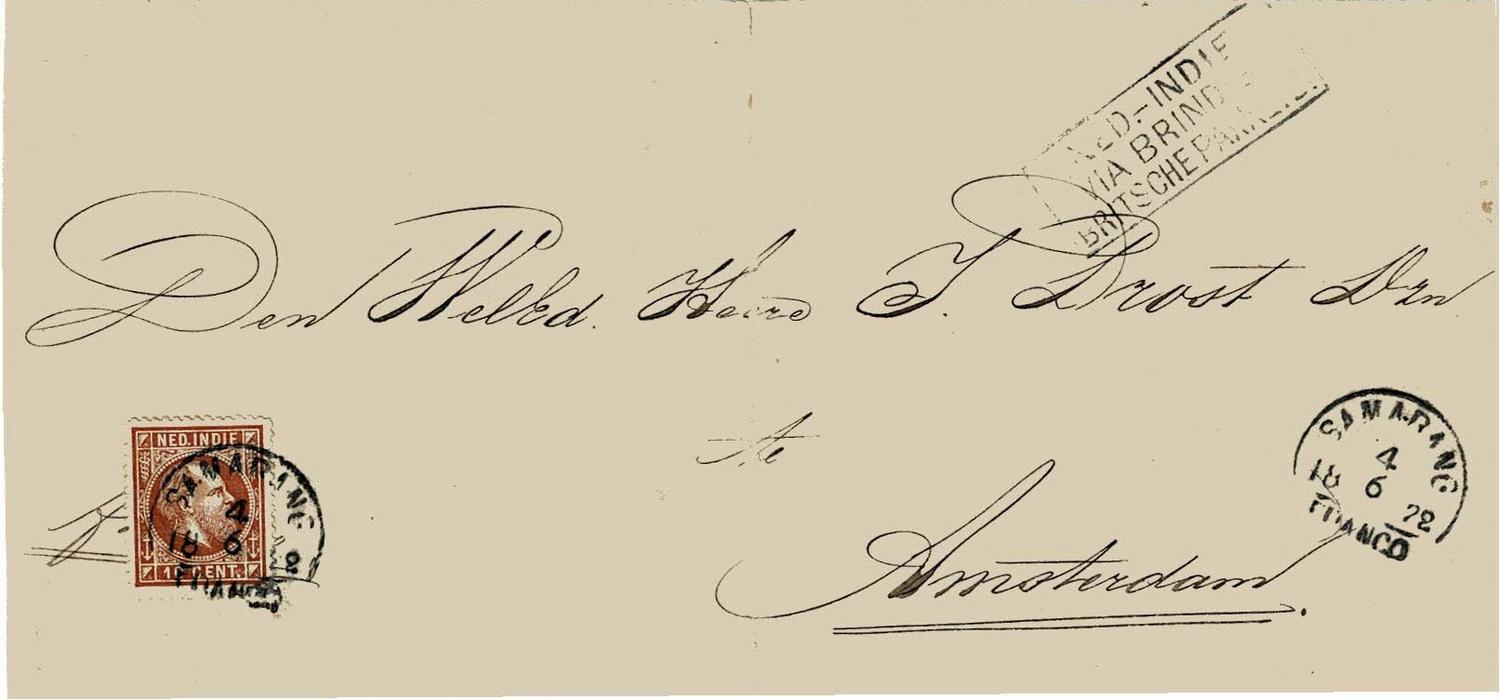 NED.-INDIE
VIA BRIND
BRITSCHE PAKK
Den WelEd. Heere J. Drost Dzn
te
Amsterdam.
NED. INDIE
10 CENT.
SAMARANG
4
18 6
FRANCO
SAMARANG
4
18 6 72
FRANCO